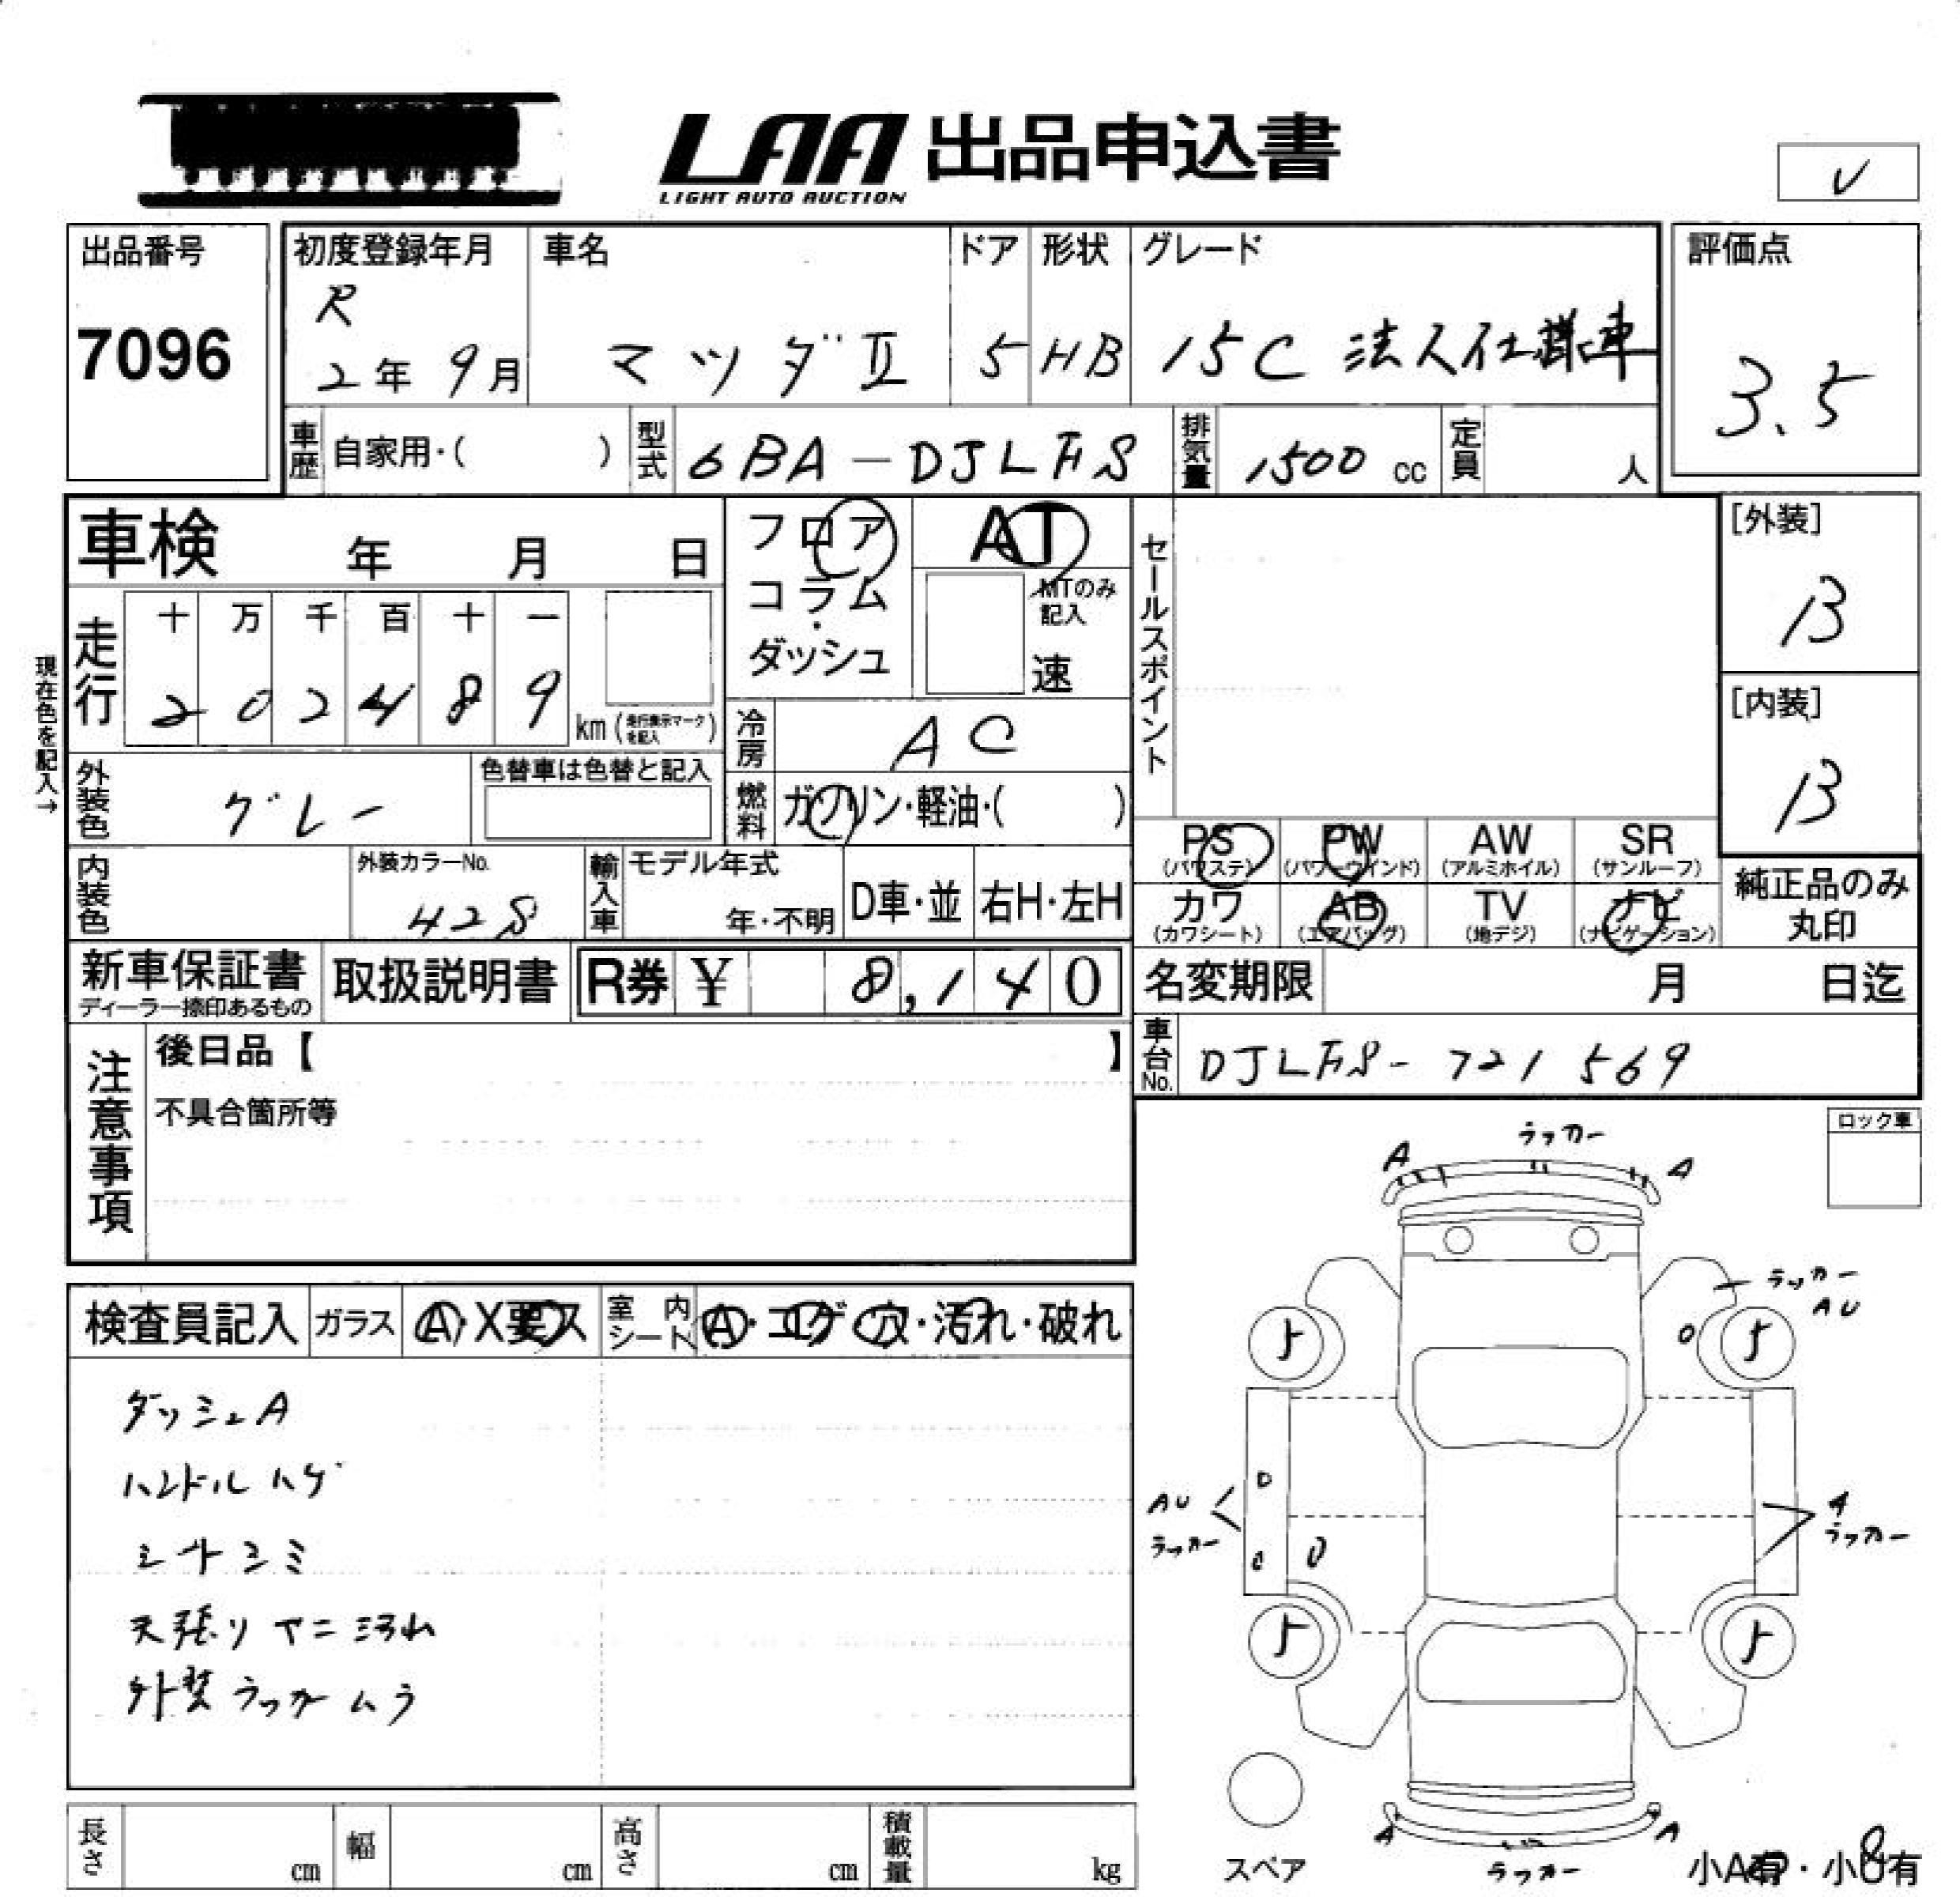 LAA 出品申込書
LIGHT AUTO AUCTION
出品番号
7096
初度登録年月
R
2年 9月
車名
マツダⅡ
ドア
5
形状
HB
グレード
15C 法人仕様車
評価点
3.5
車歴 自家用・( )
型式 6BA-DJLFS
排気量 1500 cc
定員 人
車検 年 月 日
フロア
コラム
・
ダッシュ
AT
MTのみ
記入
速
セールスポイント
[外装]
B
[内装]
B
現在色を記入→
走行
十 万 千 百 十 一
2 0 2 4 8 9 km (走行表示マークを記入)
冷房 AC
外装色 グレー
色替車は色替と記入
燃料 ガソリン・軽油・( )
PS PW AW SR
(パワステ) (パワーウインド) (アルミホイル) (サンルーフ)
カワ AB TV ナビ
(カワシート) (エアバッグ) (地デジ) (ナビゲーション)
純正品のみ
丸印
内装色
外装カラーNo.
428
輸入車
モデル年式
年・不明
D車・並
右H・左H
新車保証書
ディーラー捺印あるもの
取扱説明書
R券 ¥ 8,140
名変期限 月 日迄
車台No. DJLFS-721569
注意事項
後日品【 】
不具合箇所等
ロック車
検査員記入 ガラス A・X要ス 室内シート A・コゲ・穴・汚れ・破れ
ダッシュA
ハンドルハゲ
シートシミ
天張りヤニ汚れ
外装ラッカームラ
ラッカー
A A
ラッカー
AU
AU
ラッカー
A
ラッカー
A A
ラッカー
スペア
小A有・小U有
長さ cm
幅 cm
高さ cm
積載量 kg